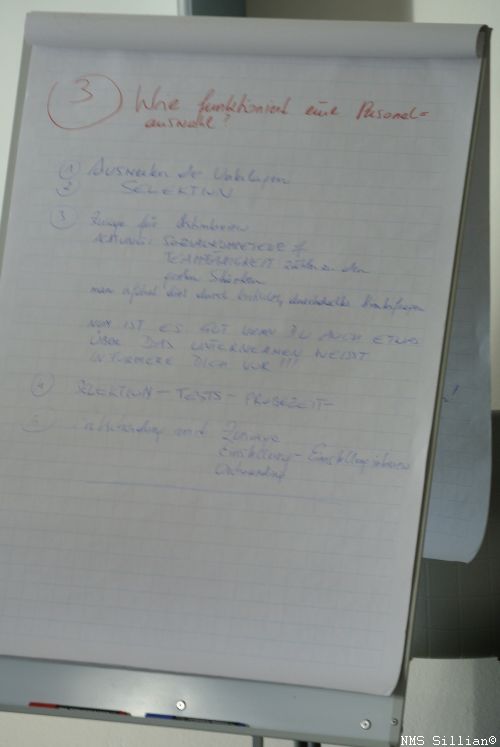 3 Wie funktioniert eine Personal=
auswahl?
1 Auswerten der Unterlagen
2 SELEKTION
3 Zusage für Interview
ACHTUNG! SOZIALKOMPETENZ &
TEAMFÄHIGKEIT zählen zu den
Stärken
man erfährt dies durch
NUN IST ES GUT WENN DU AUCH ETWAS
ÜBER DAS UNTERNEHMEN WEISST
INFORMIERE DICH VOR!!!
4 SELEKTION - TESTS - PROBEZEIT -
5 Entscheidung und Zusage
Einstellung - Einstellung
NMS Sillian©